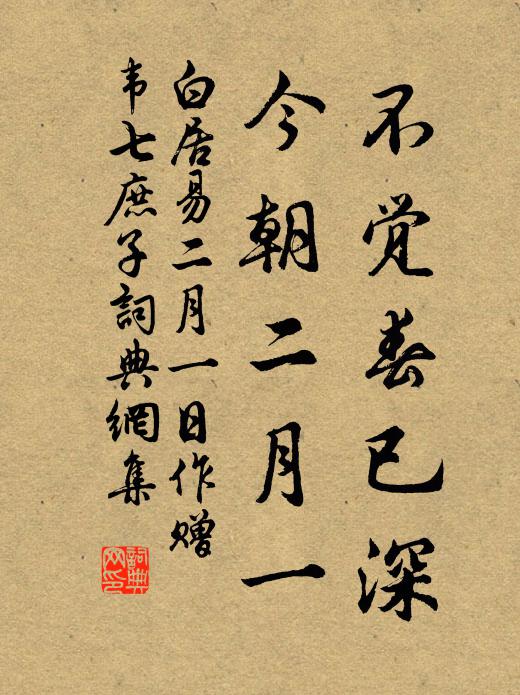 不觉春已深
今朝二月一
白居易二月一日作赠
韦七庶子詞典網集
詞典
网印